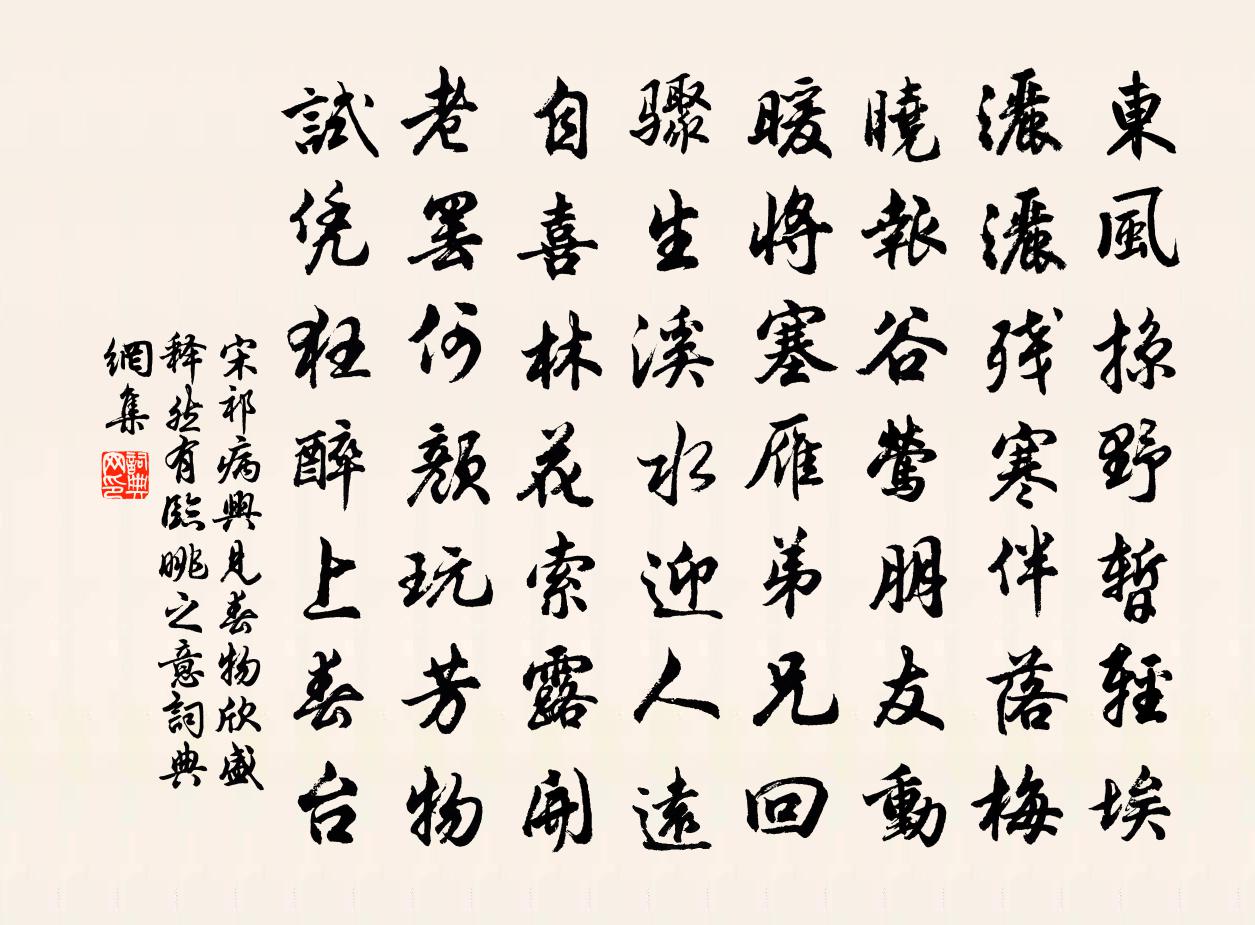 東風掠野暫輕埃
灑灑残寒伴落梅
曉報谷鶯朋友動
暖將塞雁弟兄回
驟生溪水迎人遠
自喜林花索露開
老罷何顏玩芳物
試凭狂醉上春台
宋祁病興見春物欣盛
释然有臨眺之意詞典
網集
詞典
网印